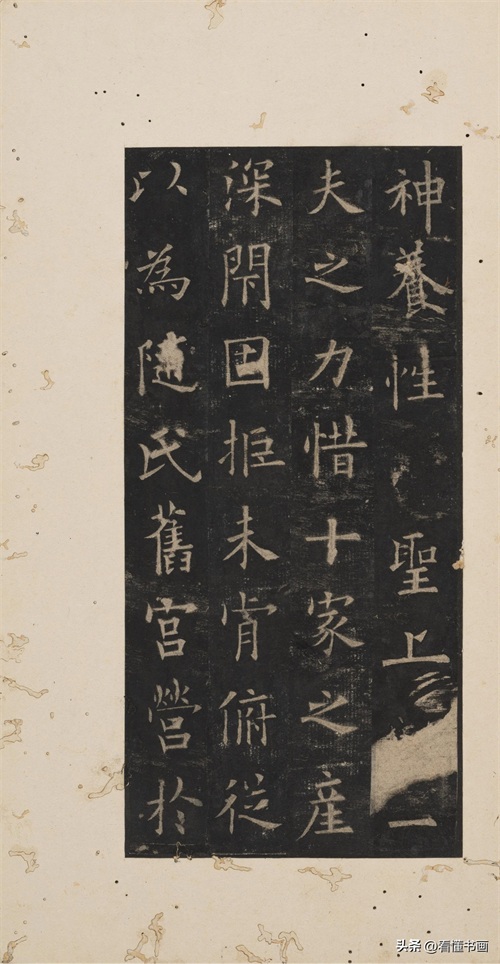 神養性聖上一
夫之力惜十家之産
深閇固拒未肯俯從
以為隨氏舊宮營於
头条 @看懂书画